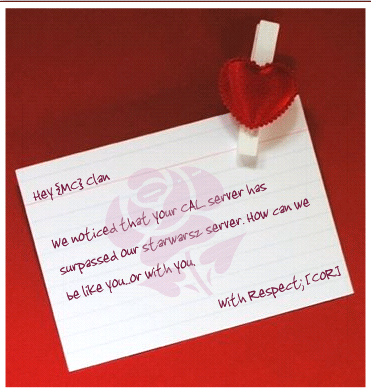 Hey {MC} Clan
We noticed that your CAL server has
surpassed our starwarsz server. How can we
be like you..or with you.
With Respect, [COR]